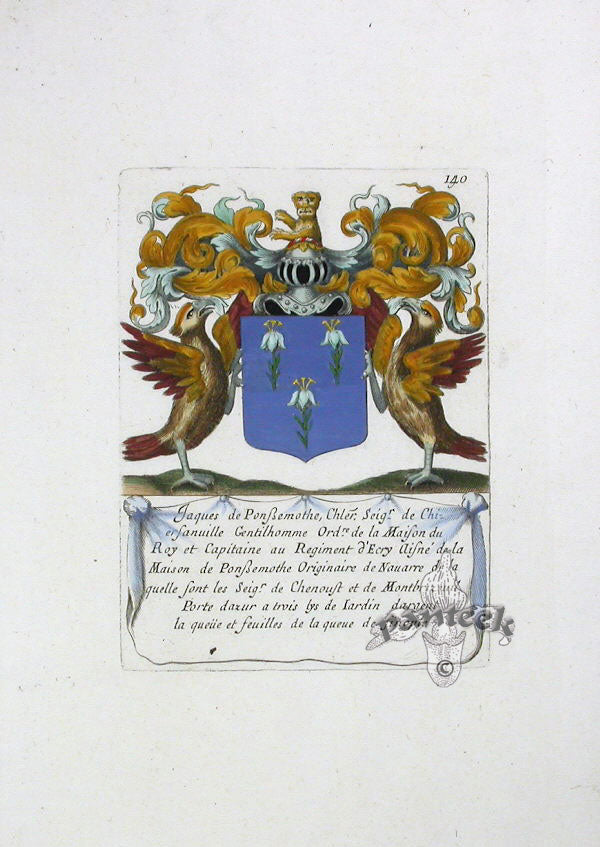 140
Jaques de Ponßemothe, Chlēr, Seigr. de Chi=
ersanuille Gentilhomme Ordre. de la Maison du
Roy et Capitaine au Regiment d'Ecry Aisné de la
Maison de Ponßemothe Originaire de Nauarre de la
quelle sont les Seigr. de Chenoust et de
Porte dazur a trois lys de Iardin dargent
la queüe et feuilles de la queue de
panteek
©